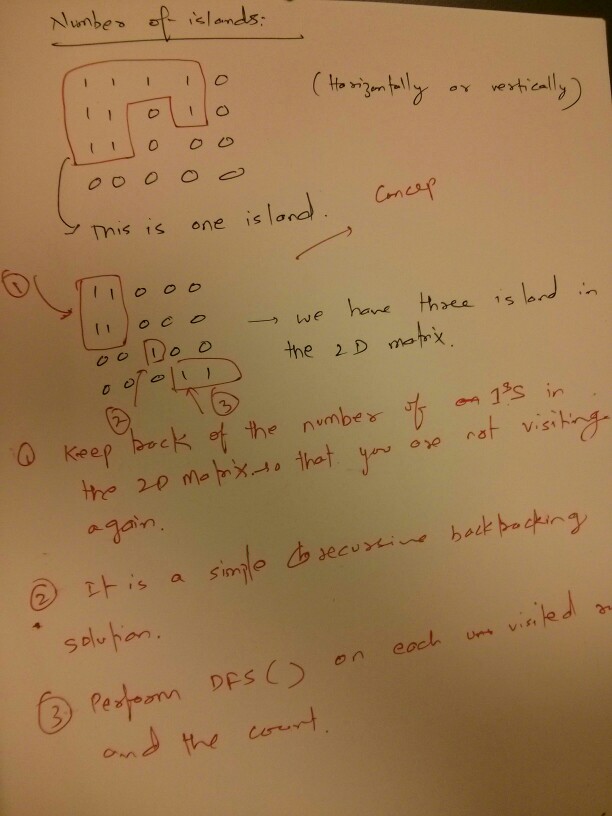 Number of islands:
1 1 1 1 0
(Horizontally or vertically)
1 1 0 1 0
1 1 0 0 0
0 0 0 0 0
This is one island.
Concep
1
1 1 0 0 0
1 1 0 0 0
→ we have three island in
0 0 1 0 0
the 2D matrix.
0 0 0 1 1
2
3
1 Keep track of the number of 1's in
the 2D matrix so that you are not visiting
again.
2 It is a simple recursive backtracking
solution.
3 Perform DFS() on each visited
and the count.